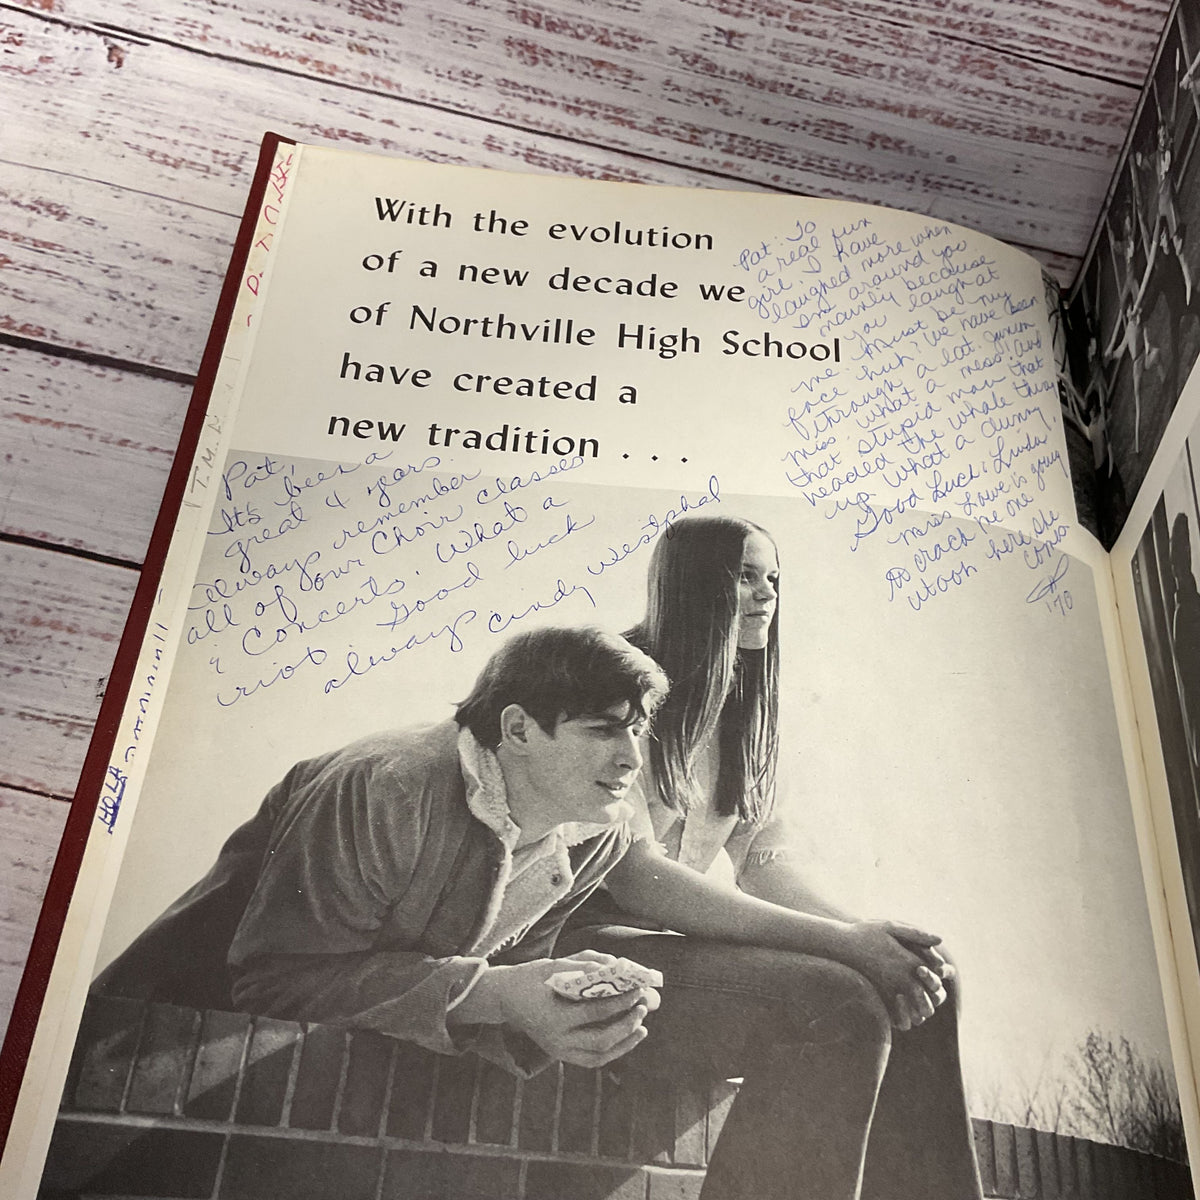 With the evolution
of a new decade we
of Northville High School
have created a
new tradition . . .
Pat: To
a real fun
girl. I have
laughed more when
around you
mainly because
you laugh at
me. Must be my
face huh? We have been
through a lot. Junior
miss what a mess! And
that stupid man that
headed the whole thing
up. What a dummy.
Good Luck: Linda
Mrs Lowe is going
to crack me one
here she
comes
'70
Pat,
It's been a
great 4 years.
Always remember
all of our Choir classes
& Concerts. What a
riot. Good luck
always Cindy Westphal
T.M.